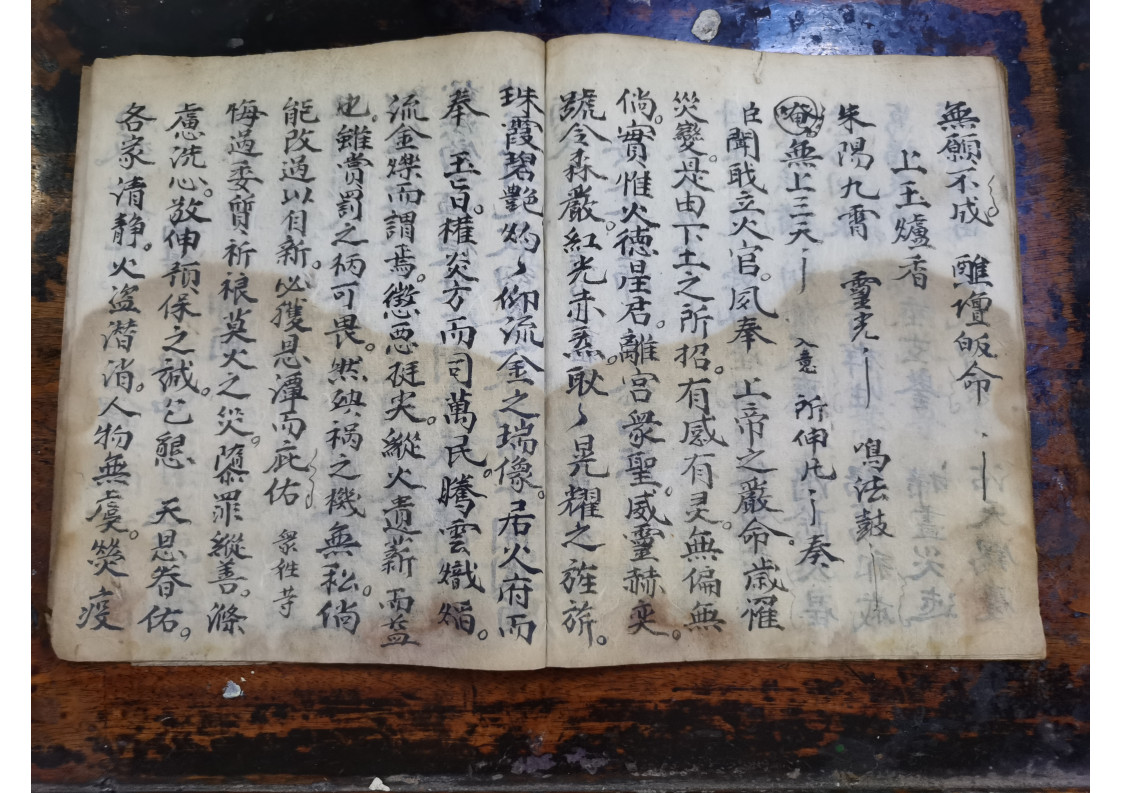 無願不成 醮壇皈命
上玉爐香
朱陽九霄 靈光 鳴法鼓
無上三天 入意 所伸凡 奏
臣聞敢立火官。夙奉 上帝之嚴命。歲罹
災變。是由下土之所招。有感有灵。無偏無
倘。實惟火德星君。離宮衆聖。威靈赫奕。
號令森嚴。紅光赤熹。耿〻晃耀之旌旂。
珠霞碧艷。灼〻仰流金之瑞像。居火府而
奉 玉旨。權炎方而司萬民。騰雲熾焰。
流金爍而謂焉。懲惡挺尖。縱火遺薪而益
也。雖賞罰之柄可畏。然殃禍之機無私。倘
能改過以自新。必獲恩潭而庇佑 衆姓等
悔過委質。祈禳莫火之災。隳罪縱善。滌
慮洗心。敬伸預保之誠。乞懇 天恩眷佑。
各家清静。火盜潜消。人物無虞。熒疫